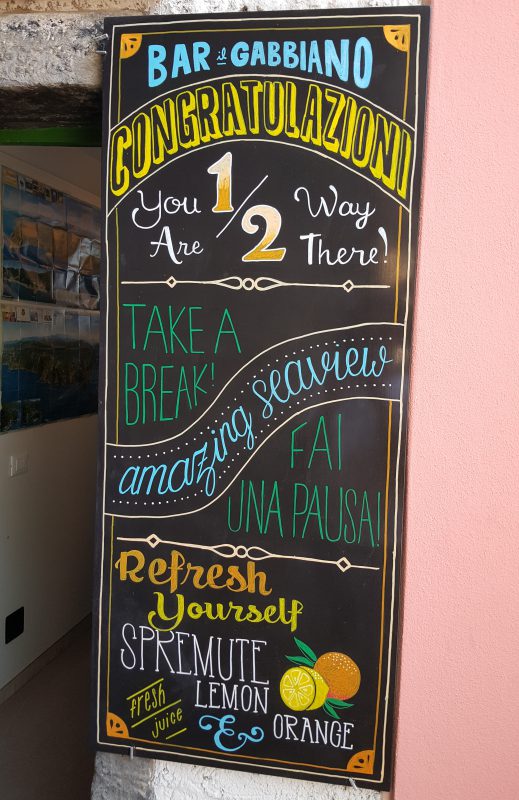 BAR il GABBIANO
CONGRATULAZIONI
You Are 1/2 Way There!
TAKE A
BREAK!
amazing seaview
FAI
UNA PAUSA!
Refresh
Yourself
SPREMUTE
LEMON
& ORANGE
fresh
juice